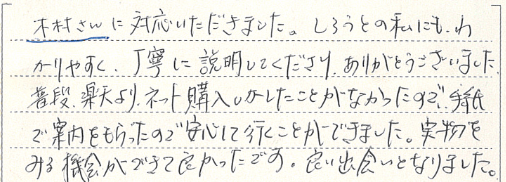 木村さんに対応いただきました。しろうとの私にも、わ
かりやすく、丁寧に説明してくださり、ありがとうございました。
普段、楽天より、ネット購入しかしたことがなかったので、手紙
で案内をもらったので安心して行くことができました。実物を
みる機会ができて良かったです。良い出会いとなりました。